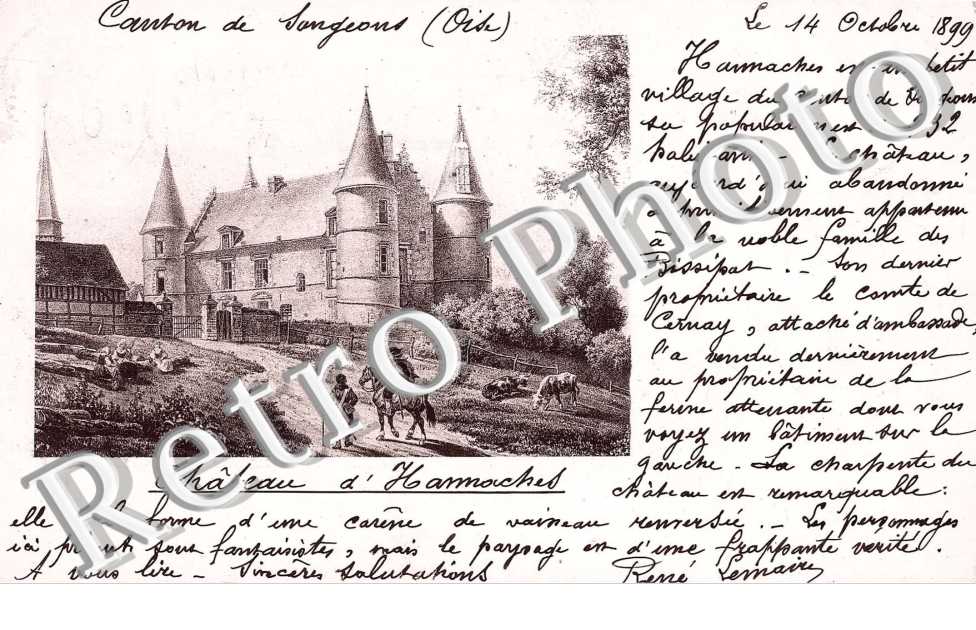 Canton de Songeons (Oise)
Le 14 Octobre 1899
Hannaches est un petit
village du canton de Songeons
sa population est de 32
habitants - Le château,
aujourd'hui abandonné
appartenu
à la noble famille des
Bissipat. - Son dernier
propriétaire le comte de
Cernay, attaché d'ambassade,
l'a vendu dernièrement
au propriétaire de la
ferme attenante dont vous
voyez un bâtiment sur la
gauche - La charpente du
château est remarquable :
elle a la forme d'une carène de vaisseau renversée. - Les personnages
ici présents sont fantaisistes, mais le paysage est d'une frappante vérité.
A vous lire - Sincères salutations
René Lemaire
Château d'Hannaches
Retro Photo